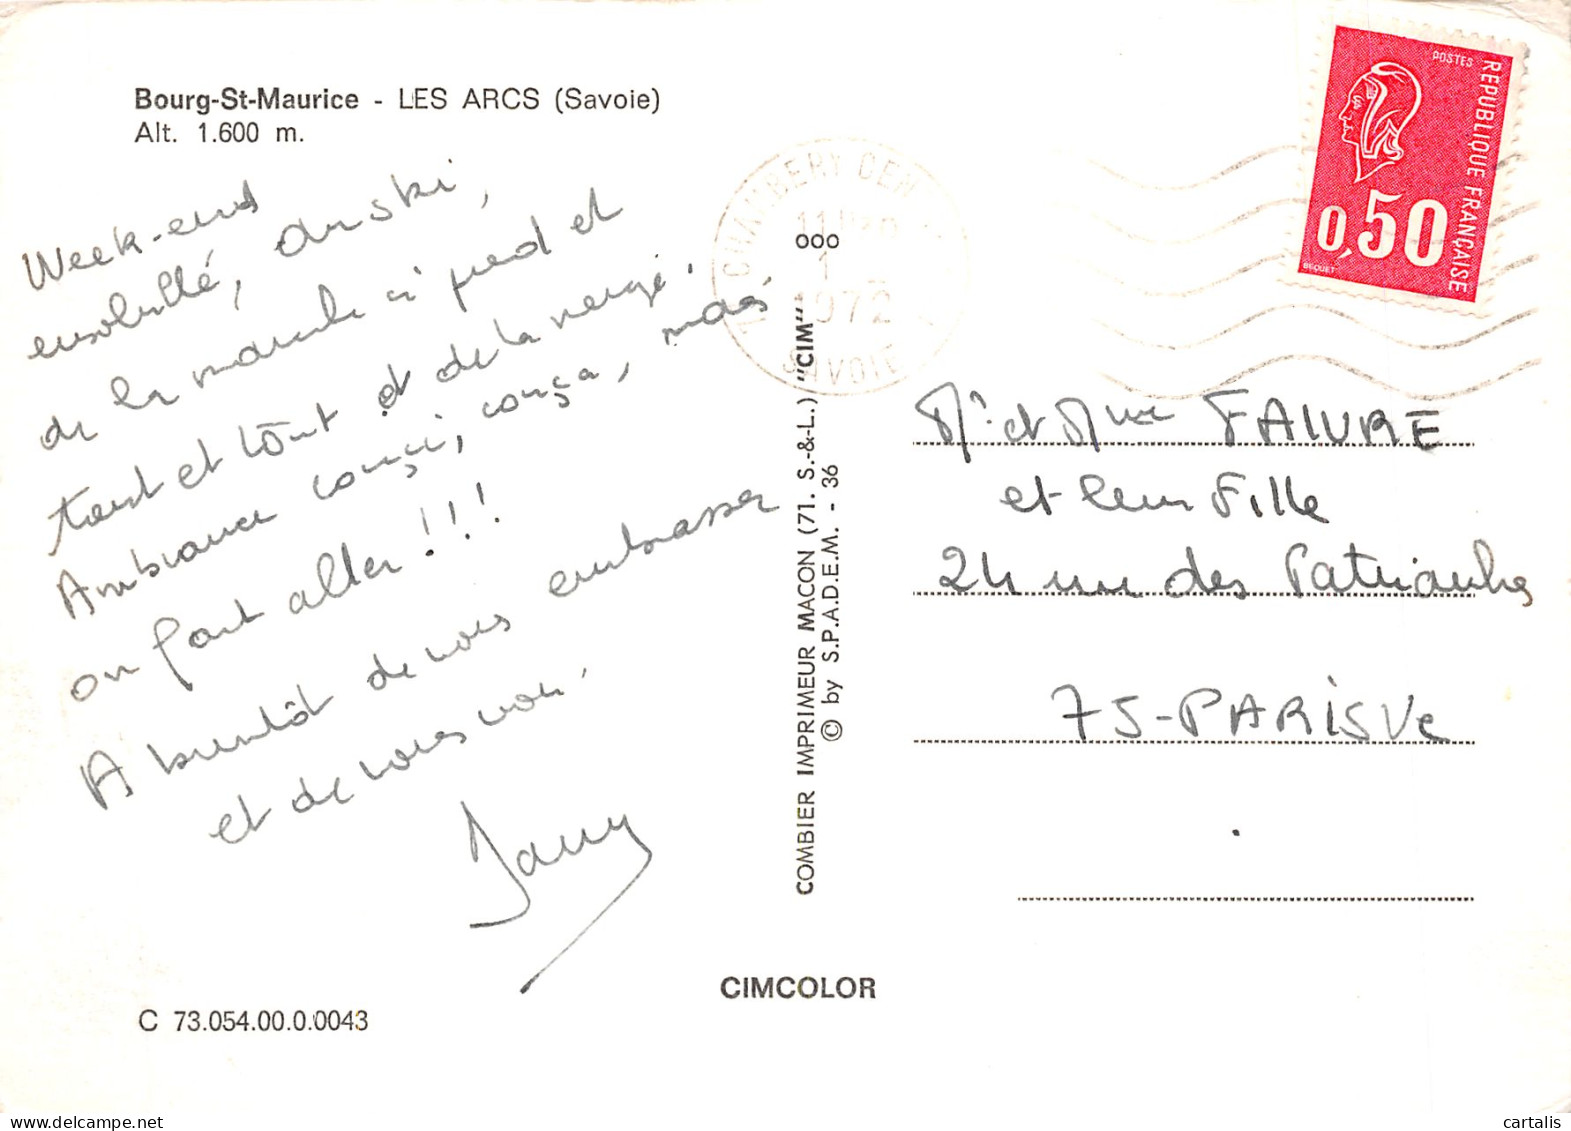 Bourg-St-Maurice - LES ARCS (Savoie)
Alt. 1.600 m.
Week-end
ensoleillé, du ski,
de la marche à pied et
tout et tout et de la neige.
Ambiance couçi, couça, mais
on fait aller!!!
A bientôt de vous embrasser
et de vous voir.
Dany
C 73.054.00.0.0043
CIMCOLOR
COMBIER IMPRIMEUR MACON (71. S.-&-L.) "CIM"
© by S.P.A.D.E.M. - 36
CHAMBERY
1972
SAVOIE
POSTES
REPUBLIQUE FRANÇAISE
0,50
BEQUET
Mr et Mme FAIVRE
et leur Fille
24 rue des Patriarches
75-PARIS Ve
cartalis